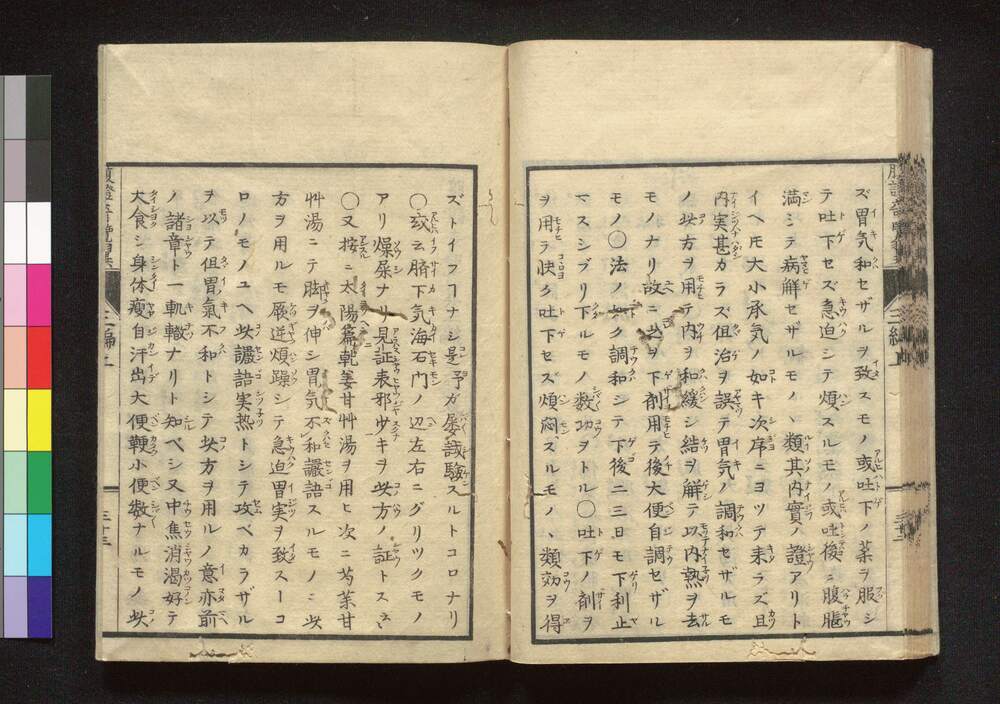 ズ胃気和セザルヲ致スモノ或吐下ノ薬ヲ服シ
テ吐下セズ急迫シテ煩スルモノ或吐後ニ腹脹
満シテ病解セザルモノヽ類其内實ノ證アリト
イヘ𪜈大小承気ノ如キ次序ニヨツテ来ラズ且
内実甚カラズ但治ヲ誤テ胃気ノ調和セザルモ
ノ此方ヲ用テ内ヲ和緩シ結ヲ解テ以内熱ヲ去
モノナリ故ニ此ヲ下剤用テ後大便自調セザル
モノ〇法ノ如ク調和シテ下後二三日モ下利止
マスシブリ下ルモノ数功ヲトル〇吐下ノ剤ヲ
ヲ用ラ快ク吐下セズ煩悶スルモノヽ類効ヲ得
ズトイフコナシ是予ガ屡試驗スルトコロナリ
〇玆云臍下気海石門ノ辺左右ニグリツクモノ
アリ燥屎ナリ見証表邪少キヲ此方ノ証トスヘシ
〇又按ニ太陽篇乾姜甘艸湯ヲ用ヒ次ニ芍薬甘
艸湯ニテ脚ヲ伸シ胃気不和讝語スルモノニ此
方ヲ用ルモ厥逆煩躁シテ急迫胃実ヲ致スーコ
ロノモノユヘ此讝語実熱トシテ攻ベカラザル
ヲ以テ但胃氣不和トシテ此方ヲ用ルノ意亦前
ノ諸章ト一軌轍ナリト知ベシ又中焦消渇好テ
大食シ身体瘦自汗出大便鞕小便数ナルモノ此
三編上
三十三